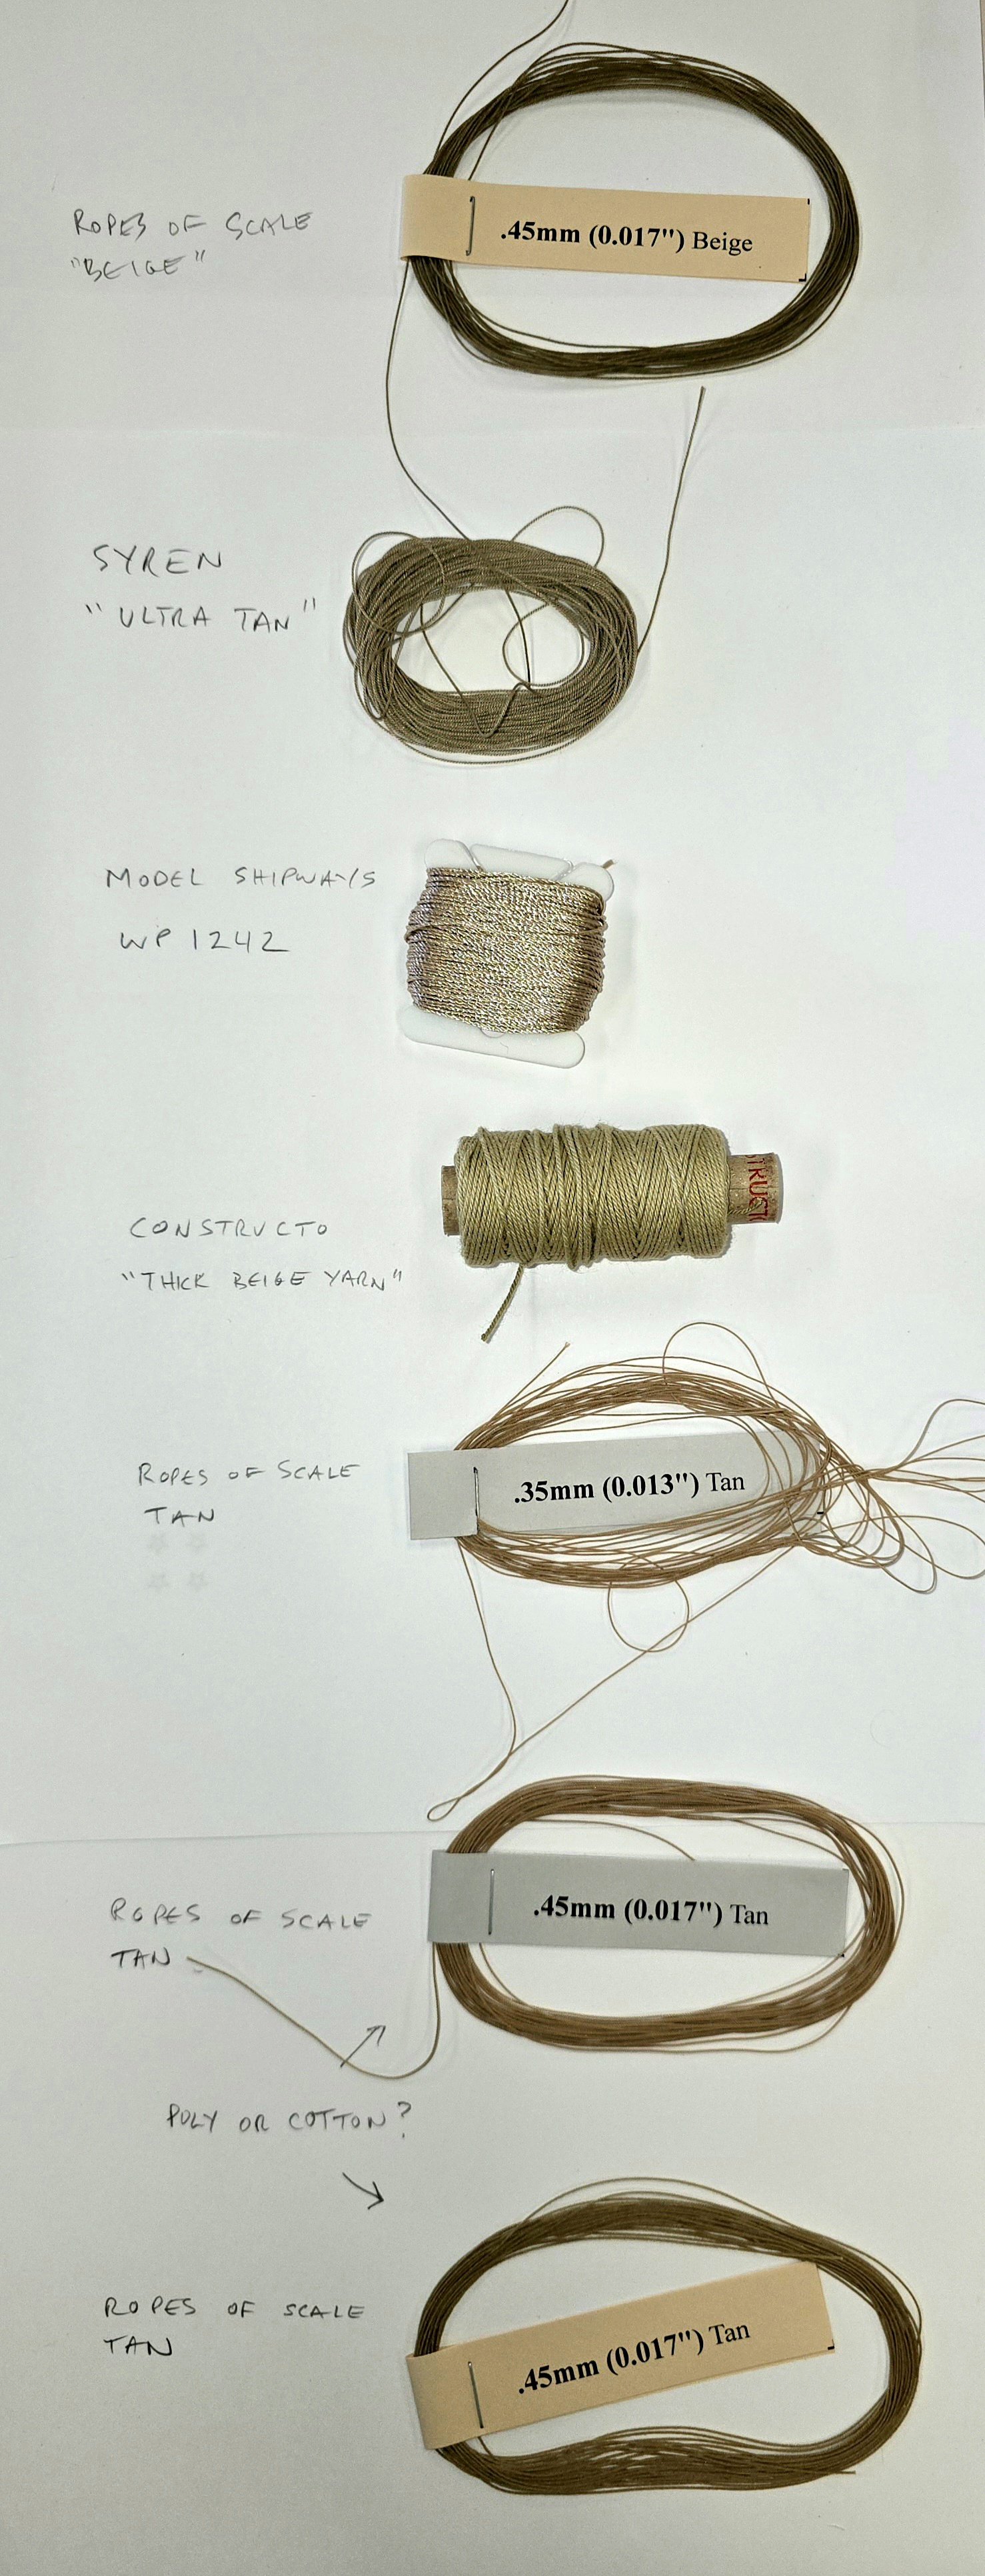 ROPES OF SCALE
"BEIGE"
.45mm (0.017") Beige
SYREN
"ULTRA TAN"
MODEL SHIPWAYS
WP 1242
CONSTRUCTO
"THICK BEIGE YARN"
TRUCT
ROPES OF SCALE
TAN
.35mm (0.013") Tan
ROPES OF SCALE
TAN
.45mm (0.017") Tan
POLY OR COTTON?
ROPES OF SCALE
TAN
.45mm (0.017") Tan